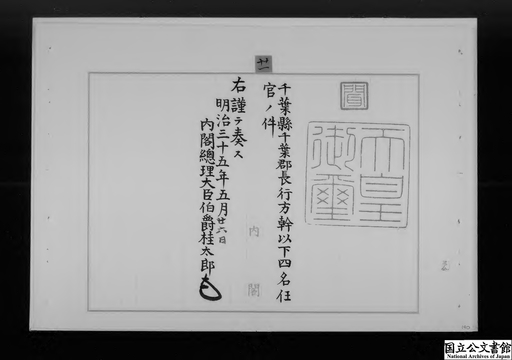 廿一
閣
天皇
御璽
千葉縣千葉郡長行方幹以下四名任
官ノ件
右謹テ奏ス
明治三十五年五月廿六日
内閣總理大臣伯爵桂太郎
内閣
国立公文書館
National Archives of Japan